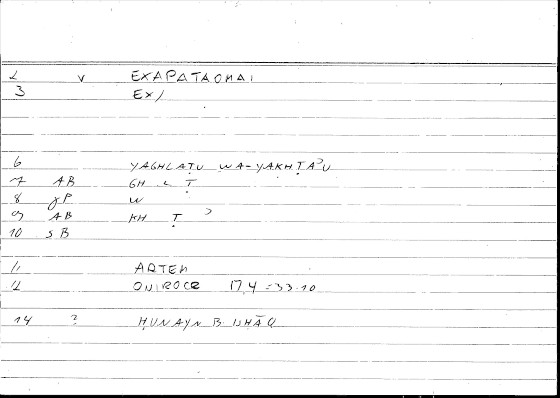 2 V EXAPATAOMAI
3 EX/
6 YAGHLAṬU WA-YAKHṬAʾU
7 AB GH L Ṭ
8 gP W
9 AB KH Ṭ ʾ
10 SB
11 ARTEM
12 ONIROCR 17,4 = 33.10
14 ? ḤUNAYN B. ISḤĀQ